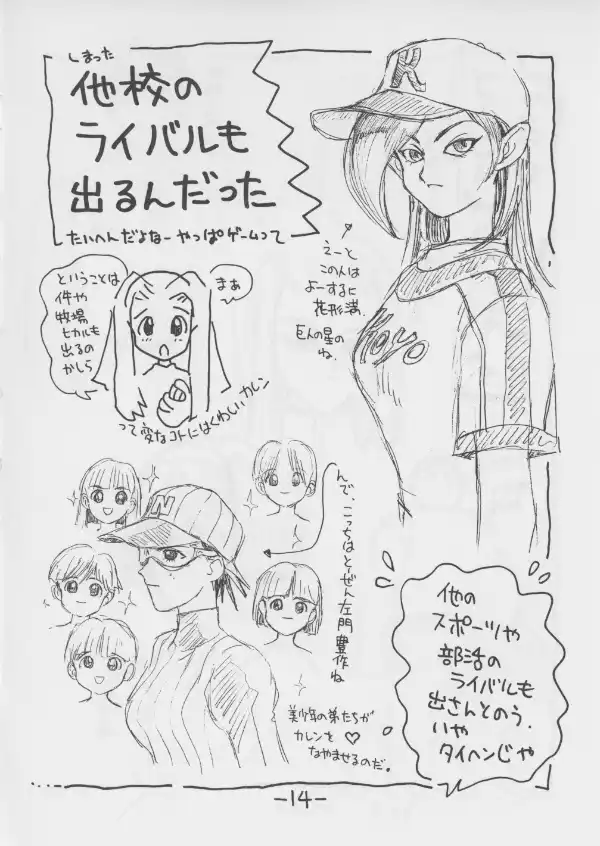 しまった
他校の
ライバルも
出るんだった
たいへんだよなーやっぱゲームって
K
えーと
この人は
よーするに
花形満。
巨人の星の
ね。
Koyo
まぁ
ということは
伴や
牧場
ヒカルも
出るの
かしら
って変なコトにはくわしいカレン
N
んで、こっちはとーぜん左門豊作ね
美少年の弟たちが
カレンを♡
なやませるのだ。
他の
スポーツや
部活の
ライバルも
出さんとのう。
いや
タイヘンじゃ
-14-